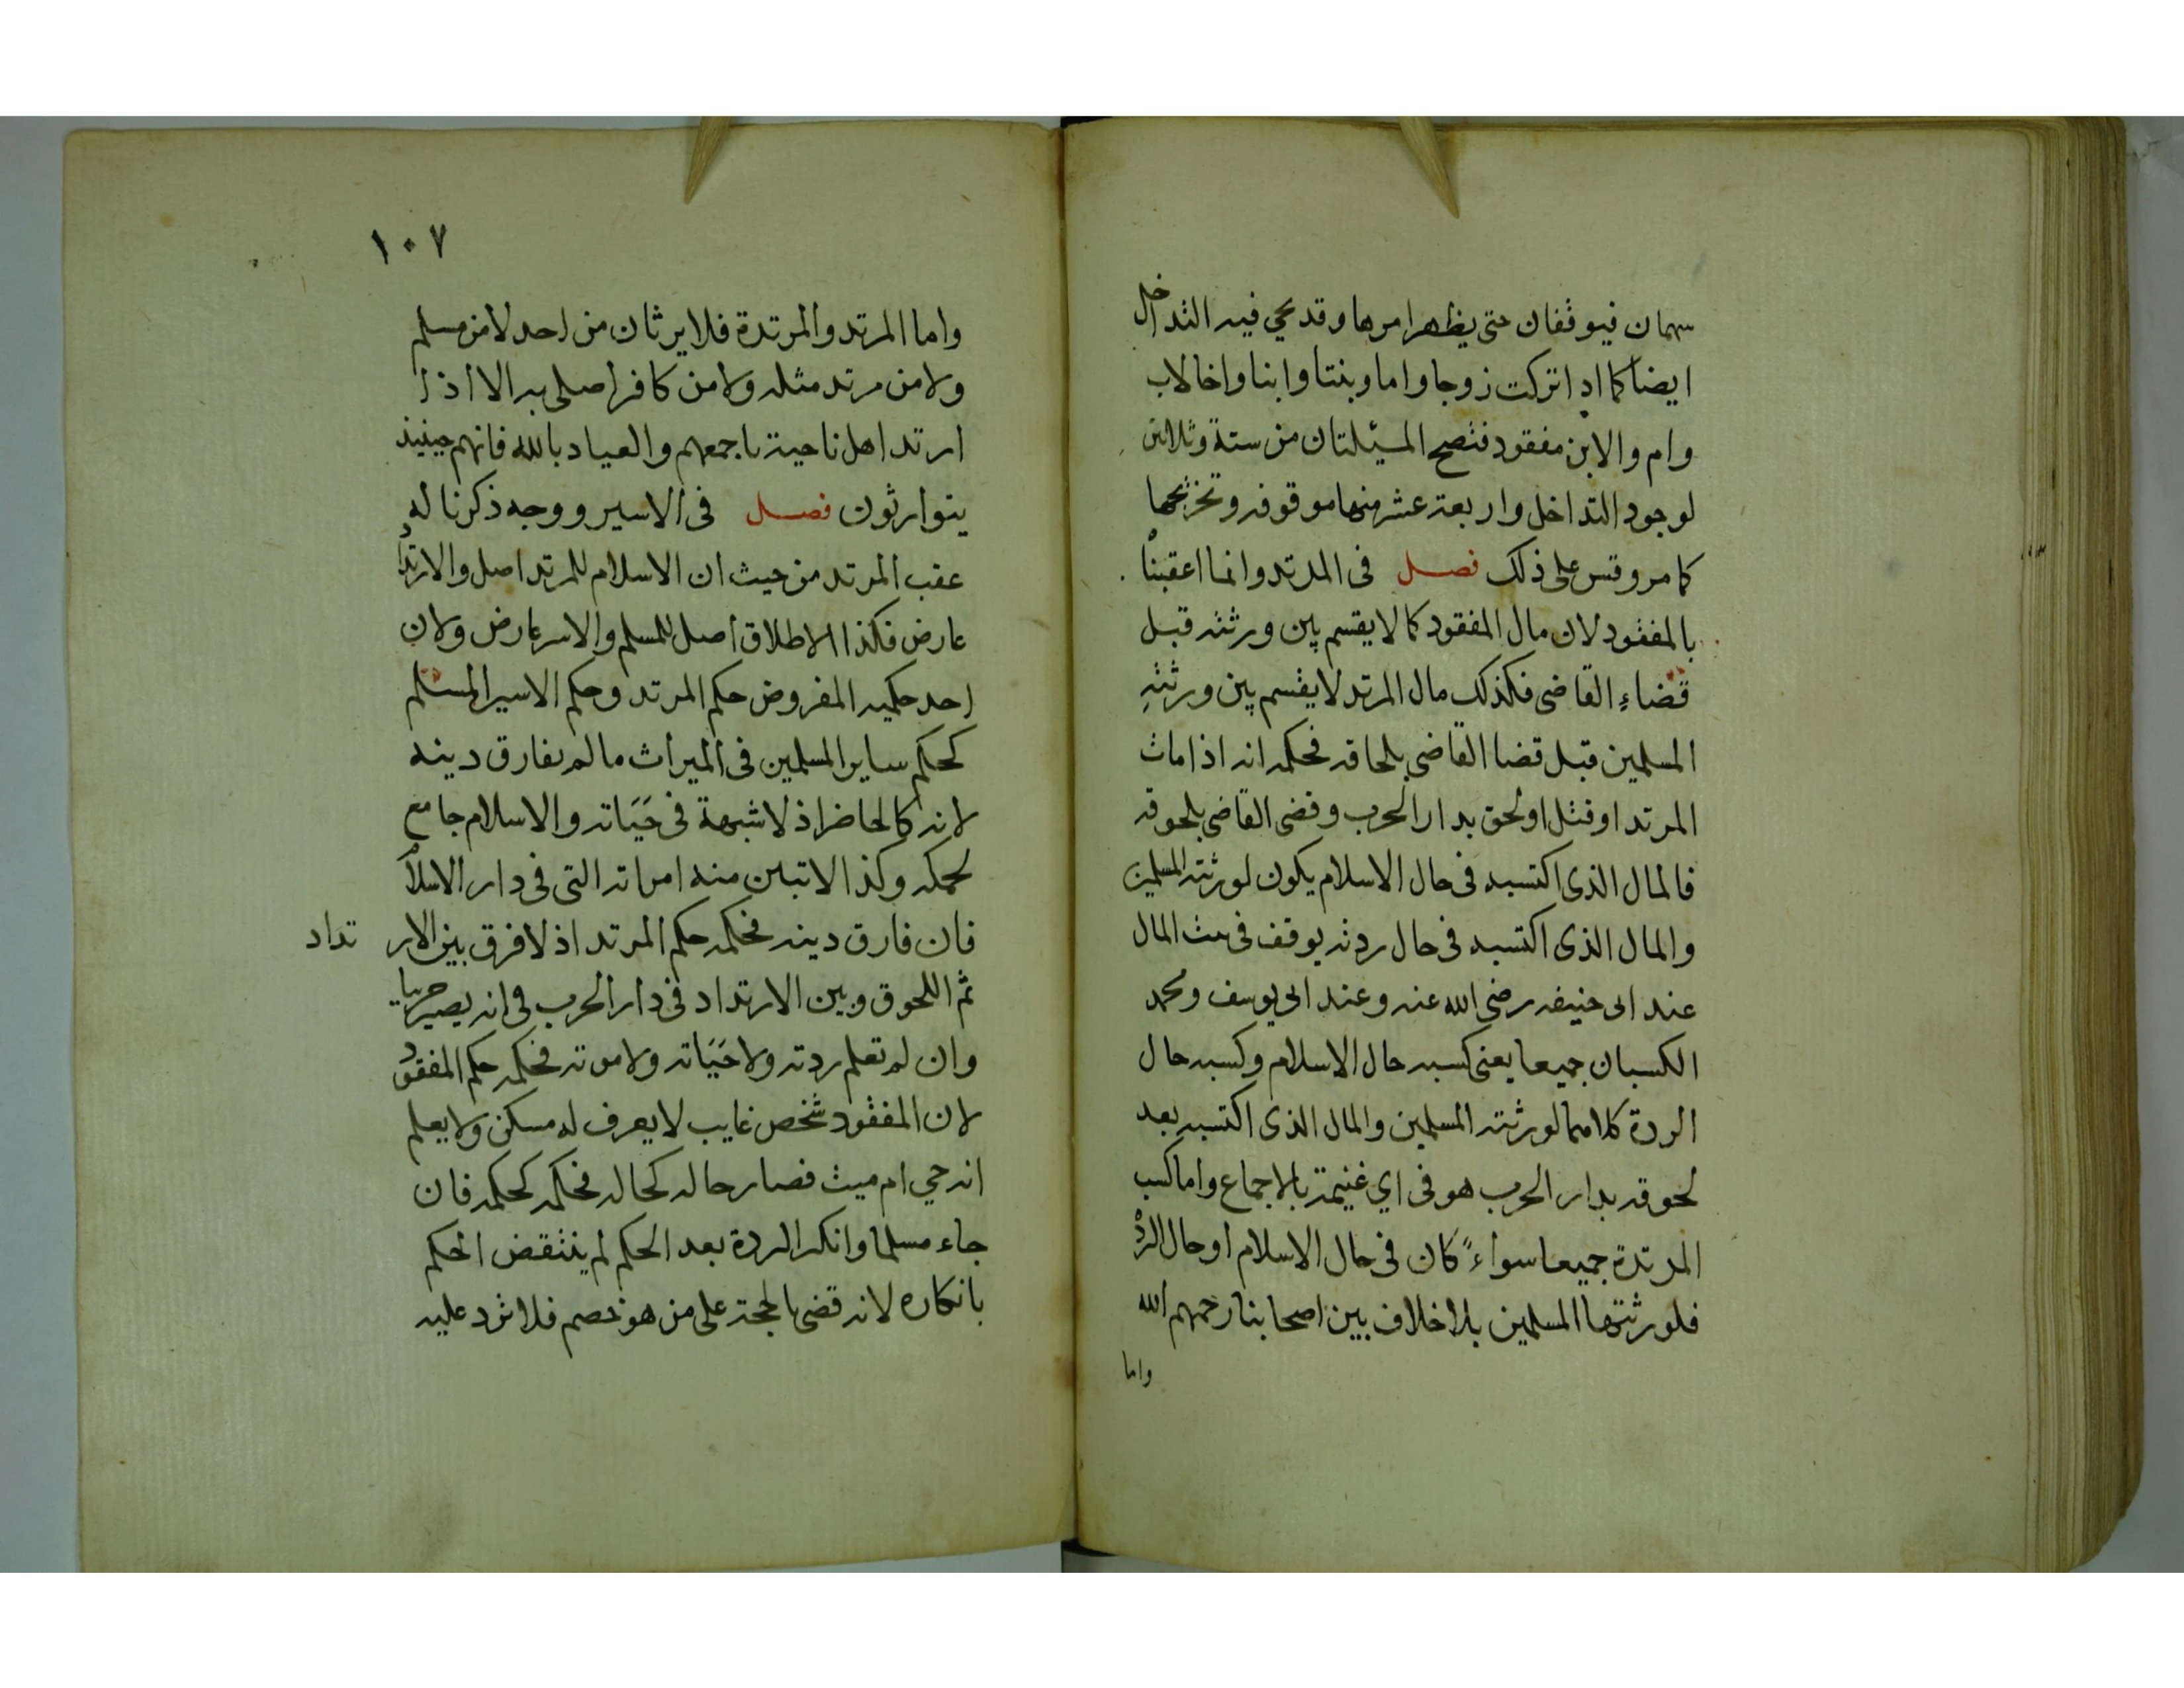 سهمان فيوقفان حتى يظهر امرها وقد يجي فيه التداخل
ايضا كما اذا تركت زوجا واما وبنتا وابنا واخا لاب
وام والابن مفقود فتصح المسئلتان من ستة وثلاثين
لوجود التداخل واربعة عشر منها موقوفه وتخريجها
كما مر وقس على ذلك فصل فى المرتد وانما اعقبنا
بالمفقود لان مال المفقود كما لا يقسم بين ورثته قبل
قضاء القاضى فكذلك مال المرتد لا يقسم بين ورثته
المسلمين قبل قضا القاضي بلحاقه فحكمه انه اذا مات
المرتد او قتل او لحق بدار الحرب وقضى القاضي بلحوقه
فالمال الذى اكتسبه فى حال الاسلام يكون لورثته المسلمين
والمال الذى اكتسبه فى حال ردته يوقف فى بيت المال
عند ابى حنيفه رضى الله عنه وعند ابى يوسف ومحمد
الكسبان جميعا يعنى كسبه حال الاسلام وكسبه حال
الردة كلاهما لورثته المسلمين والمال الذى اكتسبه بعد
لحوقه بدار الحرب هو فى اي غنيمة بالاجماع واما كسب
المرتدة جميعا سواء كان فى حال الاسلام او حال الردة
فلورثتها المسلمين بلا خلاف بين اصحابنا رحمهم الله
واما
١٠٧
واما المرتد والمرتدة فلا يرثان من احد لا من مسلم
ولا من مرتد مثله ولا من كافر اصلى به الا اذا
ارتد اهل ناحية باجمعهم والعياد بالله فانهم حينيذ
يتوارثون فصل فى الاسير ووجه ذكرنا له
عقب المرتد من حيث ان الاسلام للمرتد اصل والارتداد
عارض فكذا الاطلاق اصل للمسلم والاسر عارض ولان
احد حكميه المفروض حكم المرتد وحكم الاسير المسلم
كحكم ساير المسلمين فى الميراث ما لم يفارق دينه
لانه كالحاضر اذ لا شبهة فى حَيَاته والاسلام جامع
لحكمه وكذا لا تبين منه امراته التى فى دار الاسلام
فان فارق دينه فحكمه حكم المرتد اذ لا فرق بين الار تداد
ثم اللحوق وبين الارتداد فى دار الحرب فى انه يصير حربيا
وان لم تعلم ردته ولا حَيَاته ولا موته فحكمه حكم المفقود
لان المفقود شخص غايب لا يعرف له مسكن ولا يعلم
انه حي ام ميت فصار حاله كحاله فحكمه كحكمه فان
جاء مسلما وانكر الردة بعد الحكم لم ينتقض الحكم
بانكاره لانه قضى بالحجة على من هو خصم فلا ترد عليه